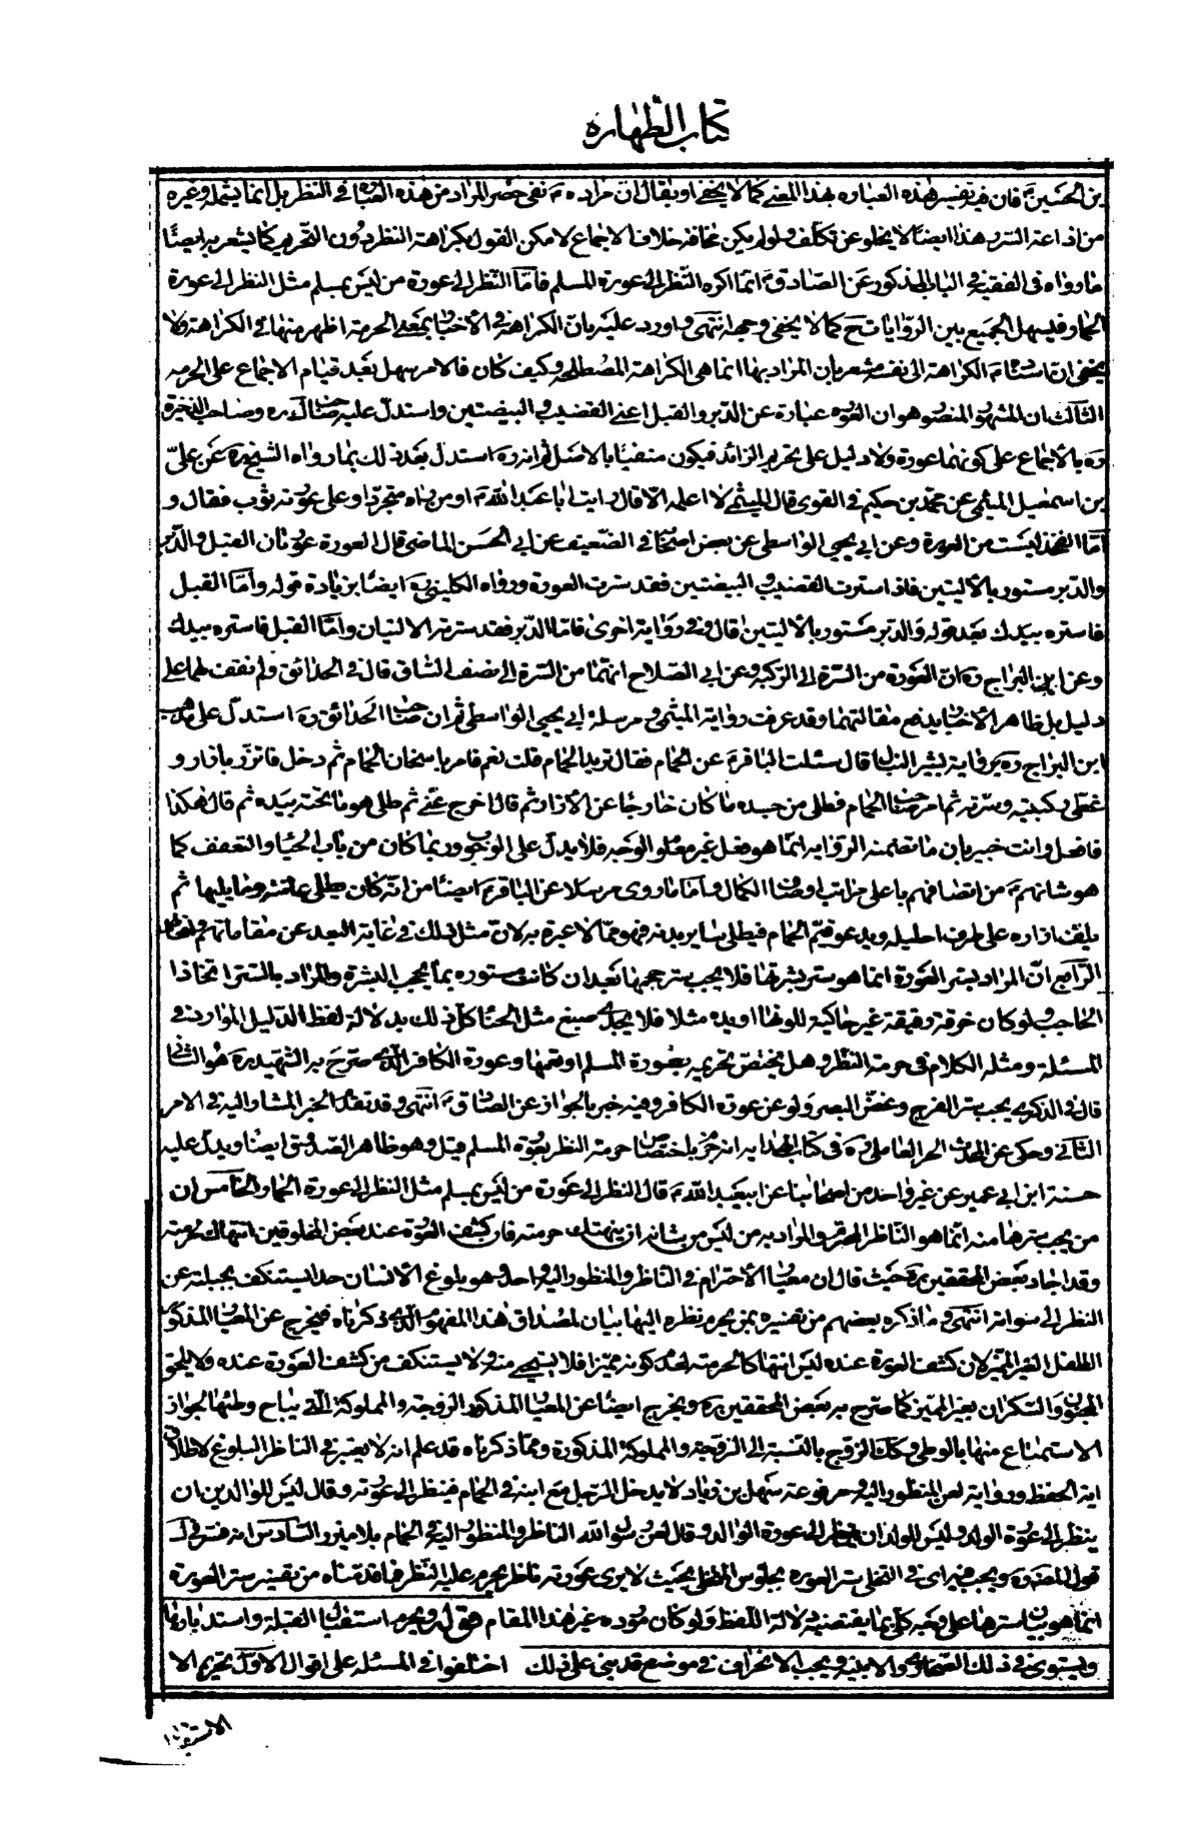 كتاب الطهارة
بن الحسين ع فان في تفسير هذه العبارة بهذا المعنى كما لا يخفى او يقال ان مراده ع نفى حصر المراد من هذه العبارة في النظر بل انما يشمله وغيره
من اذاعة السر وهذا ايضا لا يخلو عن تكلف ولو لم يكن مخافة خلاف الاجماع لامكن القول بكراهة النظر دون التحريم كما يشعر به ايضا
ما رواه في الفقيه في الباب المذكور عن الصادق ع انما اكره النظر الى عورة المسلم فاما النظر الى عورة من ليس بمسلم مثل النظر الى عورة
الحمار فيسهل الجمع بين الروايات ح كما لا يخفى وجهه انتهى واورد عليه بان الكراهة في الاخبار بمعنى الحرمة اظهر منها في الكراهة ولا
يخفى ان اسناده ع الكراهة الى نفسه مشعر بان المراد بها انما هي الكراهة المصطلحة وكيف كان فالامر سهل بعد قيام الاجماع على الحرمه
الثالث ان المشهور المنصور هو ان العورة عبارة عن الدبر والقبل اعنى القضيب والبيضتين واستدل عليه صاحب لك ره وصاحب الذخيرة
ره بالاجماع على كونهما عورة ولا دليل على تحريم الزائد فيكون منفيا بالاصل ثم انه ره استدل بعد ذلك بما رواه الشيخ ره عن على
بن اسمعيل الميثمى عن محمد بن حكيم في القوى قال الميثمى لا اعلمه الا قال رايت ابا عبد الله ع او من راه متجردا وعلى عورته ثوب فقال و
اما الفخذ ليست من العورة وعن ابى يحيى الواسطى عن بعض اصحابنا في الضعيف عن ابى الحسن الماضى قال العورة عورتان القبل والدبر
والدبر مستور بالاليتين فاذا سترت القضيب والبيضتين فقد سترت العورة ورواه الكلينى ره ايضا بزيادة قوله واما القبل
فاستره بيدك بعد قوله والدبر مستور بالاليتين قال وفي رواية اخرى فاما الدبر فقد سترته الاليتان واما القبل فاستره بيدك
وعن ابن البراج ره ان العورة من السرة الى الركبة وعن ابى الصلاح انها من السرة الى نصف الساق قال في الحدائق ولم نقف لهما على
دليل بل ظاهر الاخبار يدفع مقالتهما وقد عرفت رواية الميثمى ومرسلة ابى يحيى الواسطى ثم ان صاحب الحدائق ره استدل على مذهب
ابن البراج ره برواية بشير النبال قال سئلت الباقر ع عن الحمام فقال تريد الحمام قلت نعم فامر باسخان الحمام ثم دخل فاتزر بازار و
غطى ركبتيه وسرته ثم امر صاحب الحمام فطلى من جسده ما كان خارجا عن الازار ثم قال اخرج عنى ثم طلى هو ما تحته بيده ثم قال هكذا
فافعل وانت خبير بان ما تضمنه الروايه انما هو فعل غير معلوم الوجه فلا يدل على الوجوب وربما كان من باب الحياء والتعفف كما
هو شانهم ع من اتصافهم باعلى مراتب اوصاف الكمال واما ما روى مرسلا عن الباقر ع ايضا من انه كان يطلى عانته وما يليها ثم
يلف ازاره على طرف احليله ويدعو قيم الحمام فيطلى سائر بدنه فهو مما لا عبرة به لان مثل ذلك في غاية البعد عن مقاماتهم
الرابع ان المراد بستر العورة انما هو ستر بشرتها فلا يجب ستر حجمها بعد ان كانت مستوره بما يحجب البشرة والمراد بالستر اتخاذ
الحاجب ولو كان خرقة رقيقة غير حاكية للونها او يده مثلا فلا يجب صبغ مثل الحناء كل ذلك بدلالة لفظ الدليل الوارد في
المسئلة ومثله الكلام في حرمة النظر وهل يختص تحريمه بعورة المسلم او يعمها وعورة الكافر الذى صرح به الشهيد ره هو الثانى
قال في الذكرى يجب ستر الفرج وغض البصر ولو عن عورة الكافر وفيه خبر بالجواز عن الصادق ع انتهى وقد تقدم الخبر المشار اليه في الامر
الثانى وحكى عن المحدث الحر العاملى ره في كتاب الهداية انه جزم باختصاص حرمة النظر بعورة المسلم قيل وهو ظاهر الصدوق ايضا ويدل عليه
حسنة ابن ابى عمير عن غير واحد من اصحابنا عن ابيعبد الله ع قال النظر الى عورة من ليس بمسلم مثل النظر الى عورة الحمار الخامس ان
من يجب سترها منه انما هو الناظر المحترم والمراد به من ليس من شانه ان ينهتك حرمته فان كشف العورة عند بعض المخلوقين انتهاك لحرمته
وقد اجاد بعض المحققين ره حيث قال ان معيار الاحترام في الناظر والمنظور اليه واحد وهو بلوغ الانسان حدا يستنكف بجبلته عن
النظر الى سوأته انتهى وما ذكره بعضهم من تفسيره بمن يحرم نظره اليها بيان لمصداق هذا المفهوم الذى ذكرناه فيخرج عن المعيار المذكور
الطفل الغير المميز لان كشف العورة عنده ليس انتهاكا لحرمته لعدم كونه مميزا فلا يستحيى منه ولا يستنكف من كشف العورة عنده ولا يلحق
المجنون والسكران بغير المميز كما صرح به بعض المحققين ره ويخرج ايضا عن المعيار المذكور الزوجة والمملوكة التى يباح وطئها لجواز
الاستمتاع منها بالوطى وكذا الزوج بالنسبة الى الزوجة والمملوكة المذكورة ومما ذكرناه قد علم انه لا يعتبر في الناظر البلوغ لاطلاق
اية الحفظ ورواية لعن المنظور اليه ومرفوعة سهل بن زياد لا يدخل الرجل مع ابنه في الحمام فينظر الى عورته وقال ليس للوالدين ان
ينظر الى عورة الولد وليس للولد ان ينظر الى عورة الوالد وقال لعن رسول الله الناظر والمنظور اليه في الحمام بلا ميزر السادس انه فسر في لك
قول المصنف ره ويجب ستر العورة بجلوس المتخلى بحيث لا يرى عورته ناظر يحرم عليه النظر فما قدمناه من تفسير ستر العورة
انما هو بيان لسترها على وجه كلى بما يقتضيه دلالة اللفظ ولو كان مورده غير هذا المقام قوله ويحرم استقبال القبلة واستدبارها
ويستوى في ذلك الصحارى والابنيه ويجب الانحراف في موضع قد بنى على ذلك اختلفوا في المسئله على اقوال الاول تحريم الا
الاستقبال